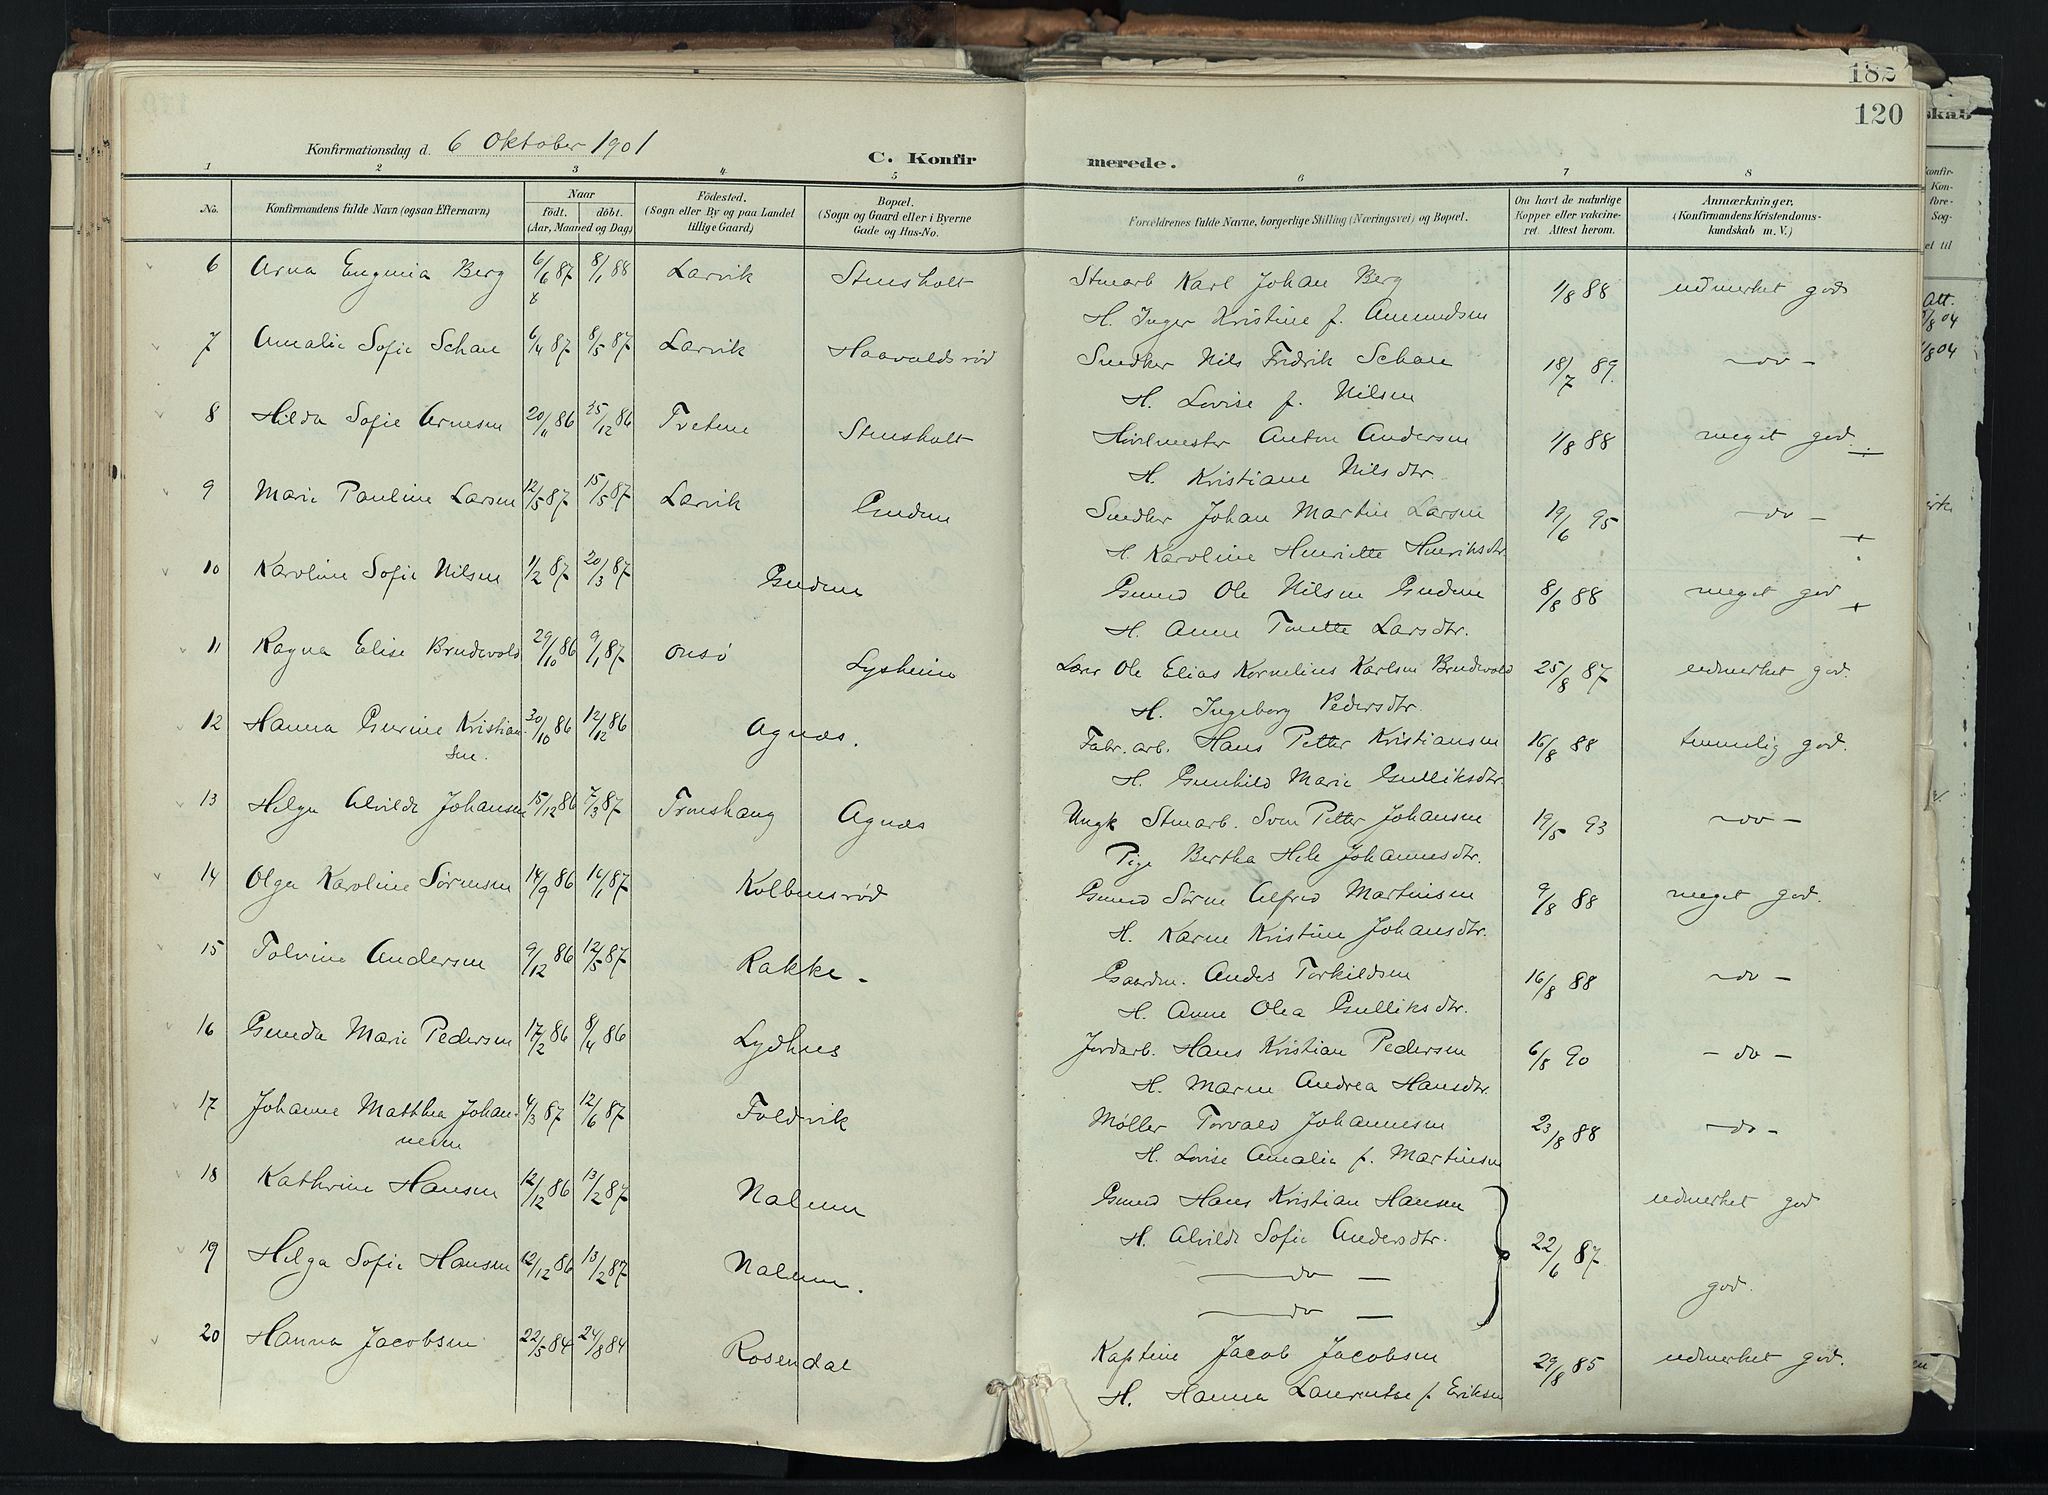 182
120
Konfirmationsdag d. 6 Oktober 1901
C. Konfirmerede.
1 2 3 4 5 6 7 8
No.
Konfirmandens fulde Navn (ogsaa Efternavn)
Naar
födt. döbt.
(Aar, Maaned og Dag)
Födested.
(Sogn eller By og paa Landet
tillige Gaard)
Bopæl.
(Sogn og Gaard eller i Byerne
Gade og Hus-No.
Forældrenes fulde Navne, borgerlige Stilling (Næringsvei) og Bopæl.
Om havt de naturlige
Kopper eller vakcine-
ret. Attest herom.
Anmærkninger,
(Konfirmandens Kristendoms-
kundskab m. V.)
6 Arna Eugenia Berg 6/6 87 8/1 88 Larvik Stensholt Stenarb Karl Johan Berg 1/8 88 udmerket god
H. Inger Kristine f. Amundsen
7 Amalie Sofie Schau 6/4 87 8/5 87 Larvik Haavaldsrød Snedker Nils Fredrik Schau 18/7 89. -do-
H. Lovise f. Nilsen
8 Hilda Sofie Arnesen 20/11 86 25/12 86 Tvetene Stensholt Anton Andersen 1/8 88 meget god
H. Kristiane Nilsdtr.
9 Marie Pauline Larsen 12/5 87 15/5 87 Larvik Gudem Snedker Johan Martin Larsen 19/6 95 -do-
H. Karoline Henriette Henriksdtr
10 Karoline Sofie Nilsen 1/2 87 20/3 87 Gudem Grund Ole Nilsen Gudem 8/8 88 meget god
H. Anne Tonette Larsdtr.
11 Ragna Elise Brudevold 29/10 86 9/1 87 Onsö Lysheim Lærer Ole Elias Kornelius Karlsen Brudevold 25/8 87 udmerket god.
H. Ingeborg Pedersdtr.
12 Hanna Gurine Kristian- 30/10 86 12/12 86 Agnæs. Fabr. arb. Hans Petter Kristiansen 16/8 88 temmelig god.
sen. H. Gunhild Marie Gulliksdtr.
13 Helga Alvilde Johansen 15/12 86 7/3 87 Fronshaug Agnæs Ungk Stenarb. Sven Petter Johansen 19/5 93 -do-
Pige Bertha Hele Johannesdtr.
14 Olga Karoline Sørensen 14/9 86 16/1 87 Kolbensrød Grund Sørn Alfred Martinsen 9/8 88 meget god.
H. Karen Kristine Johansdtr.
15 Tolvine Andersen 9/12 86 12/5 87 Rakke - Gaardm. Andes Torkildsen 16/8 88 -do-
H. Anne Olea Gulliksdtr.
16 Gunda Marie Pedersen 17/2 86 8/4 86 Lydhus Jordarb. Hans Kristian Pedersen 6/8 90 -do-
H. Maren Andrea Hansdtr.
17 Johanne Matthea Johan- 4/3 87 12/6 87 Foldvik Møller Torvald Johannesen 23/8 88 -do-
nesen H. Lovise Amalie f. Martinsen
18 Kathrine Hansen 12/12 86 13/2 87 Nalum Grund Hans Kristian Hansen udmerket god
H. Alvilde Sofie Andersdtr. 22/6 87
19 Helga Sofie Hansen 12/12 86 13/2 87 Nalum. -do-
-do- god.
20 Hanna Jacobsen 22/5 84 24/8 84 Rosendal Kaptein Jacob Jacobsen 29/8 85 udmerket god.
H. Hanna Laurentse f. Eriksen